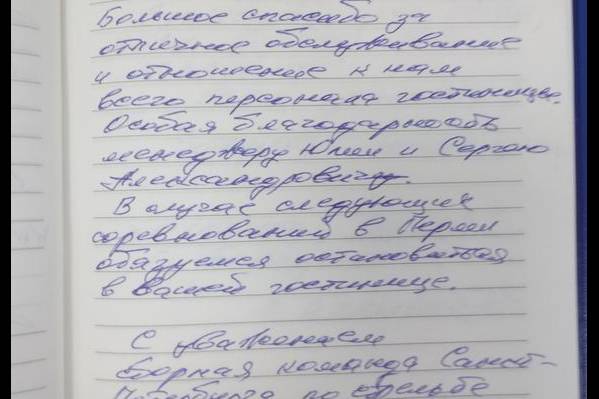 Большое спасибо за
отличное обслуживание
и отношение к нам
всего персонала гостиницы.
Особая благодарность
менеджеру Юлии и Сергею
Александровичу.
В случае следующих
соревнований в Перми
обязуемся остановиться
в вашей гостинице.
С уважением
сборная команда Санкт-
Петербурга по стрельбе